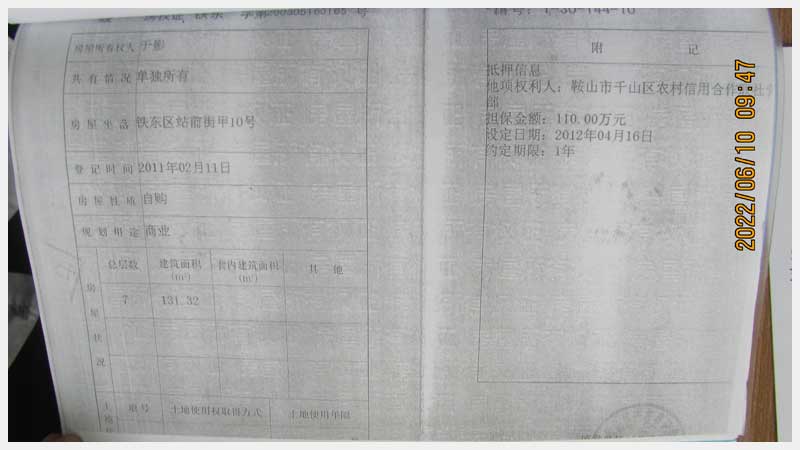 房权证 铁东 字第200305160165号
编号：1-30-144-10
房屋所有权人 于影
共有情况 单独所有
房屋坐落 铁东区站前街甲10号
登记时间 2011年02月11日
房屋性质 自购
规划用途 商业
房屋状况
总层数 建筑面积(m²) 套内建筑面积(m²) 其他
7 131.32
土地
地号 土地使用权取得方式 土地使用年限
附记
抵押信息
他项权利人：鞍山市千山区农村信用合作
部
担保金额：110.00万元
设定日期：2012年04月16日
约定期限：1年
2022/06/10 09:47